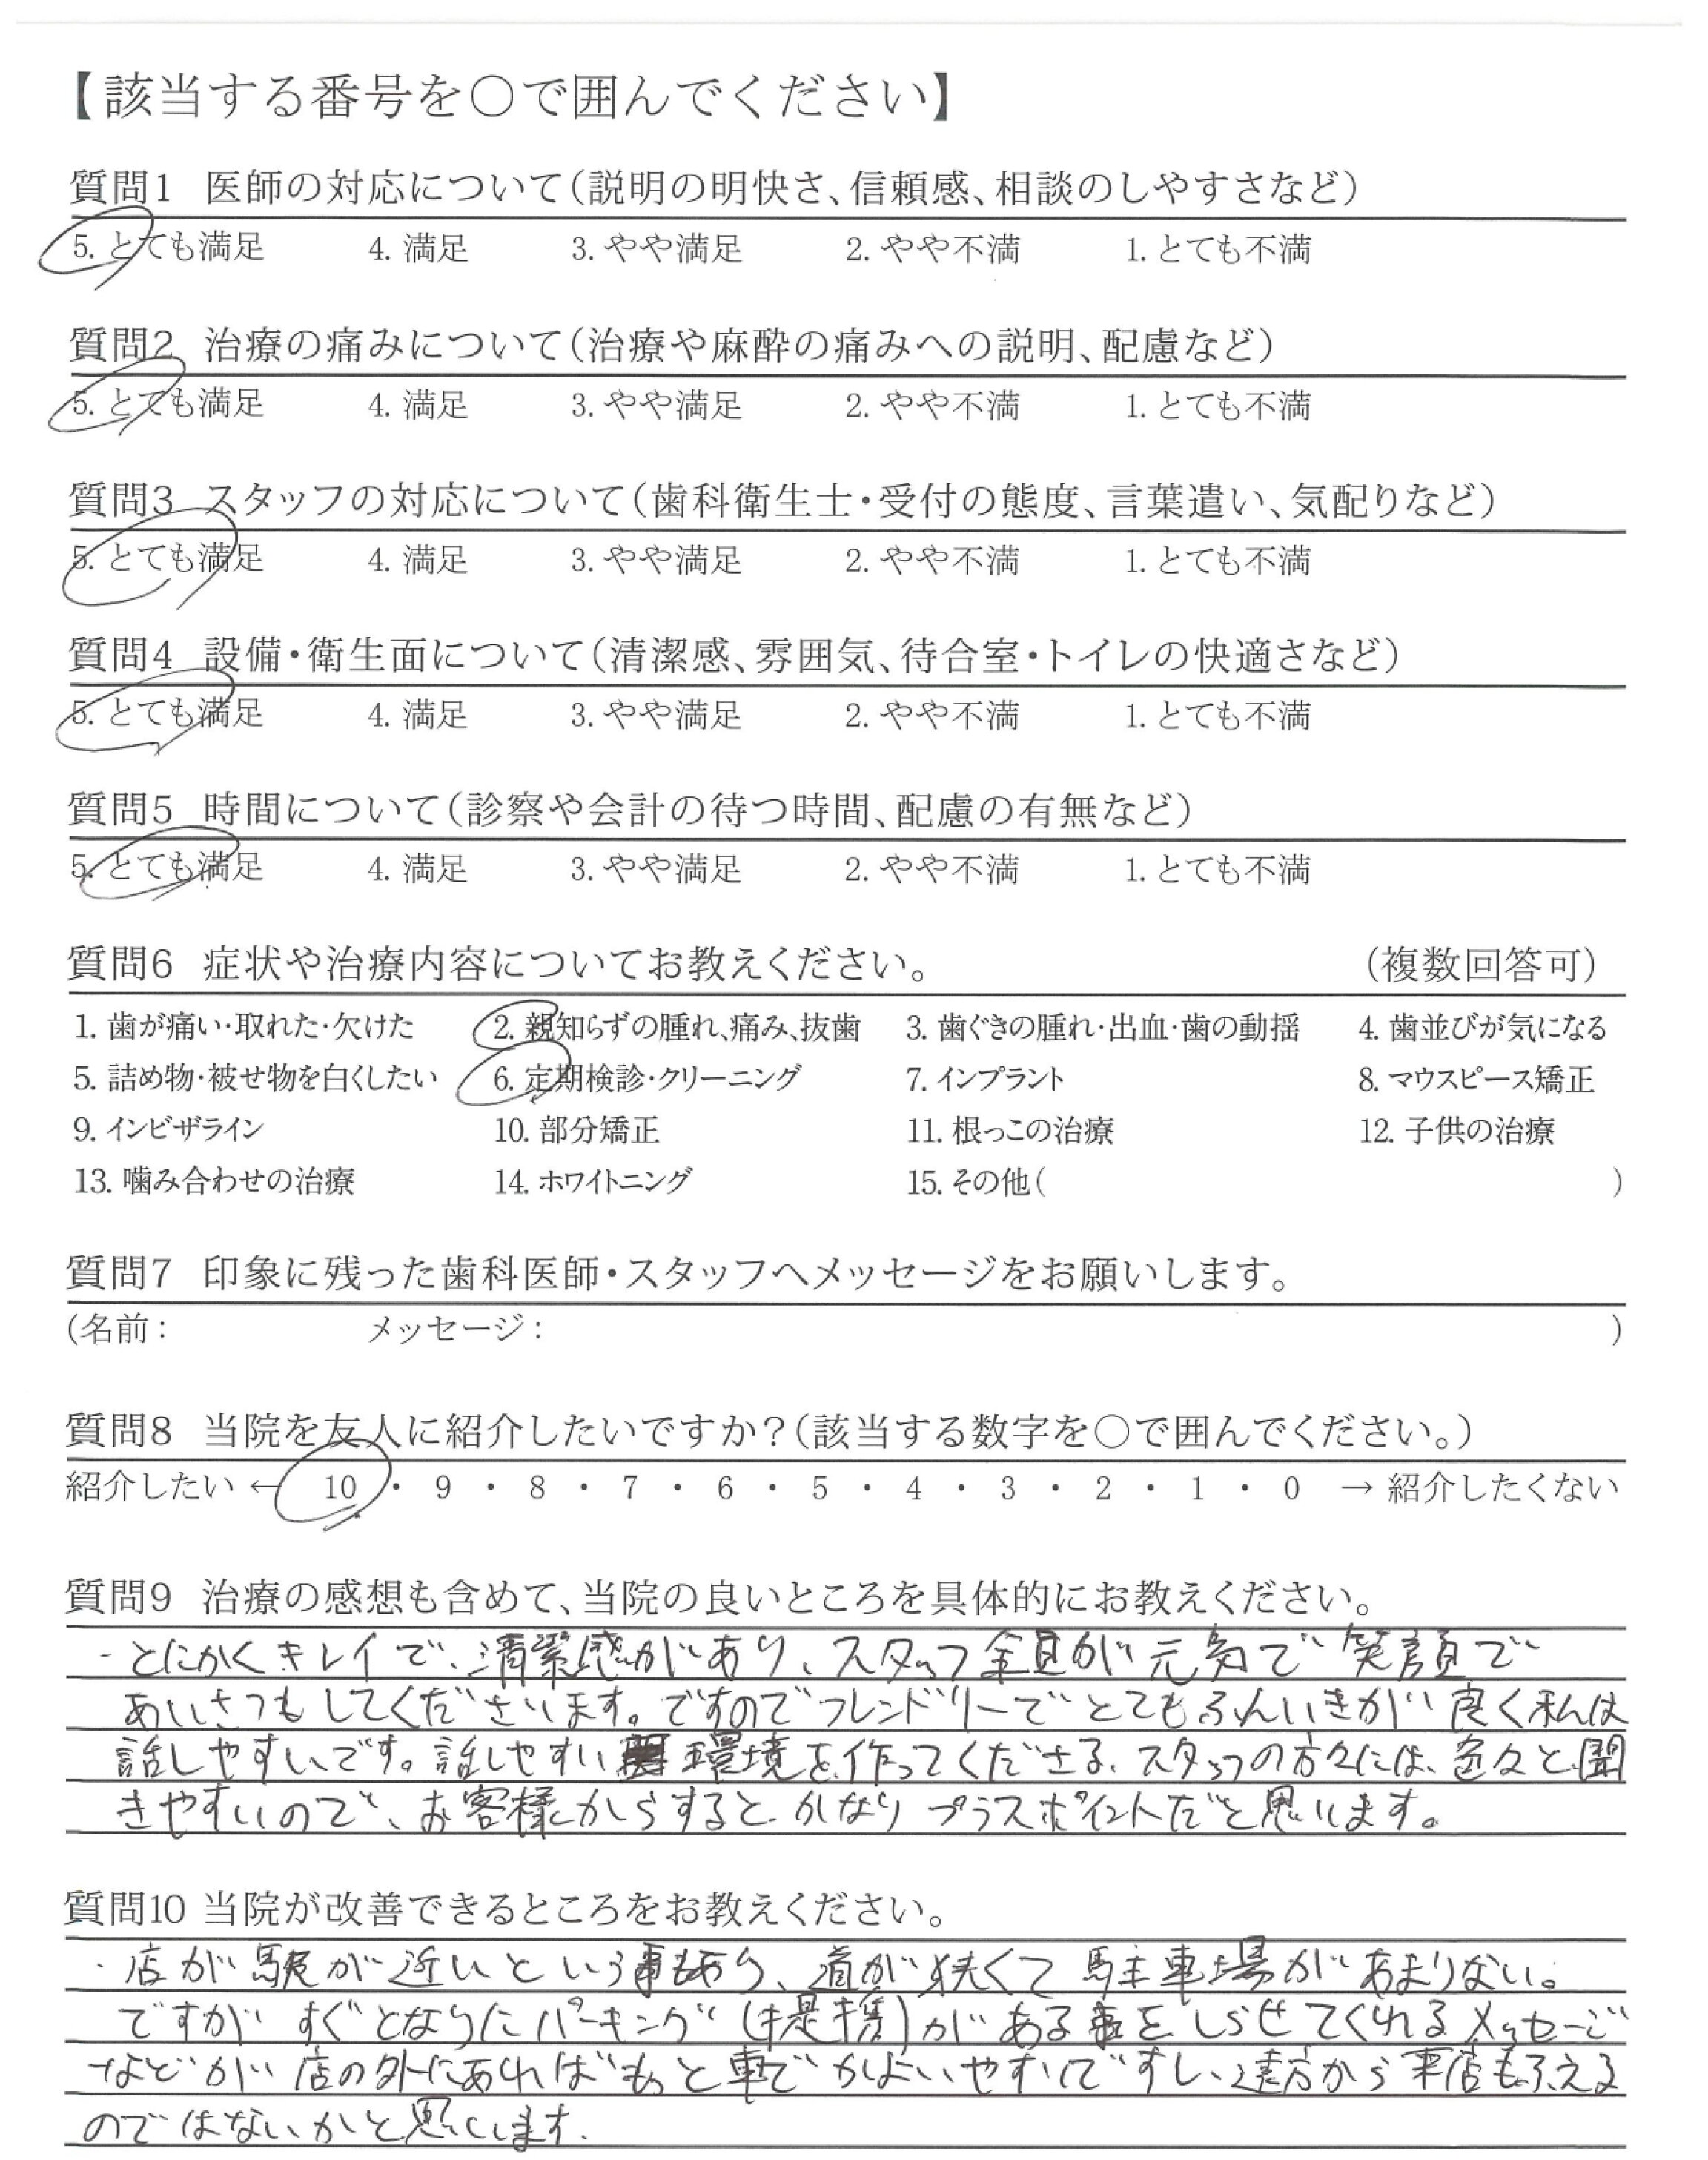 【該当する番号を○で囲んでください】
質問1 医師の対応について（説明の明快さ、信頼感、相談のしやすさなど）
5. とても満足 4. 満足 3. やや満足 2. やや不満 1. とても不満
質問2 治療の痛みについて（治療や麻酔の痛みへの説明、配慮など）
5. とても満足 4. 満足 3. やや満足 2. やや不満 1. とても不満
質問3 スタッフの対応について（歯科衛生士・受付の態度、言葉遣い、気配りなど）
5. とても満足 4. 満足 3. やや満足 2. やや不満 1. とても不満
質問4 設備・衛生面について（清潔感、雰囲気、待合室・トイレの快適さなど）
5. とても満足 4. 満足 3. やや満足 2. やや不満 1. とても不満
質問5 時間について（診察や会計の待つ時間、配慮の有無など）
5. とても満足 4. 満足 3. やや満足 2. やや不満 1. とても不満
質問6 症状や治療内容についてお教えください。 （複数回答可）
1. 歯が痛い・取れた・欠けた 2. 親知らずの腫れ、痛み、抜歯 3. 歯ぐきの腫れ・出血・歯の動揺 4. 歯並びが気になる
5. 詰め物・被せ物を白くしたい 6. 定期検診・クリーニング 7. インプラント 8. マウスピース矯正
9. インビザライン 10. 部分矯正 11. 根っこの治療 12. 子供の治療
13. 噛み合わせの治療 14. ホワイトニング 15. その他（ ）
質問7 印象に残った歯科医師・スタッフへメッセージをお願いします。
（名前： メッセージ： ）
質問8 当院を友人に紹介したいですか？（該当する数字を○で囲んでください。）
紹介したい ← 10 ・ 9 ・ 8 ・ 7 ・ 6 ・ 5 ・ 4 ・ 3 ・ 2 ・ 1 ・ 0 → 紹介したくない
質問9 治療の感想も含めて、当院の良いところを具体的にお教えください。
・とにかくキレイで、清潔感があり、スタッフ全員が元気で笑顔で
あいさつもしてくださいます。ですのでフレンドリーでとてもふんいきが良く私は
話しやすいです。話しやすい環境を作ってくださる、スタッフの方々には、色々と聞
きやすいので、お客様からするとかなりプラスポイントだと思います。
質問10 当院が改善できるところをお教えください。
・店が駅が近いという事もあり、道が狭くて駐車場があまりない。
ですがすぐとなりにパーキング（提携）がある事をしらせてくれるメッセージ
などが店の外にあればもっと車でかよいやすいですし、遠方から来店もふえる
のではないかと思います。